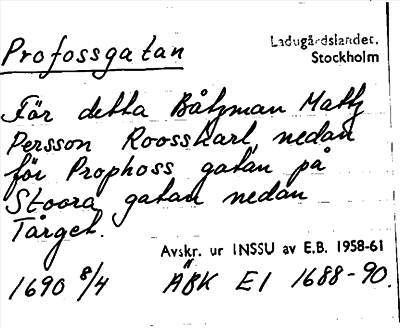 Profossgatan
Ladugårdslandet,
Stockholm
För detta Båtzman Mattz
Persson Roosskarl, nedan
för Prophoss gatan på
Stoora gatan nedan
Tårget.
Avskr. ur INSSU av E.B. 1958-61
1690 8/4 ÄBK EI 1688-90.